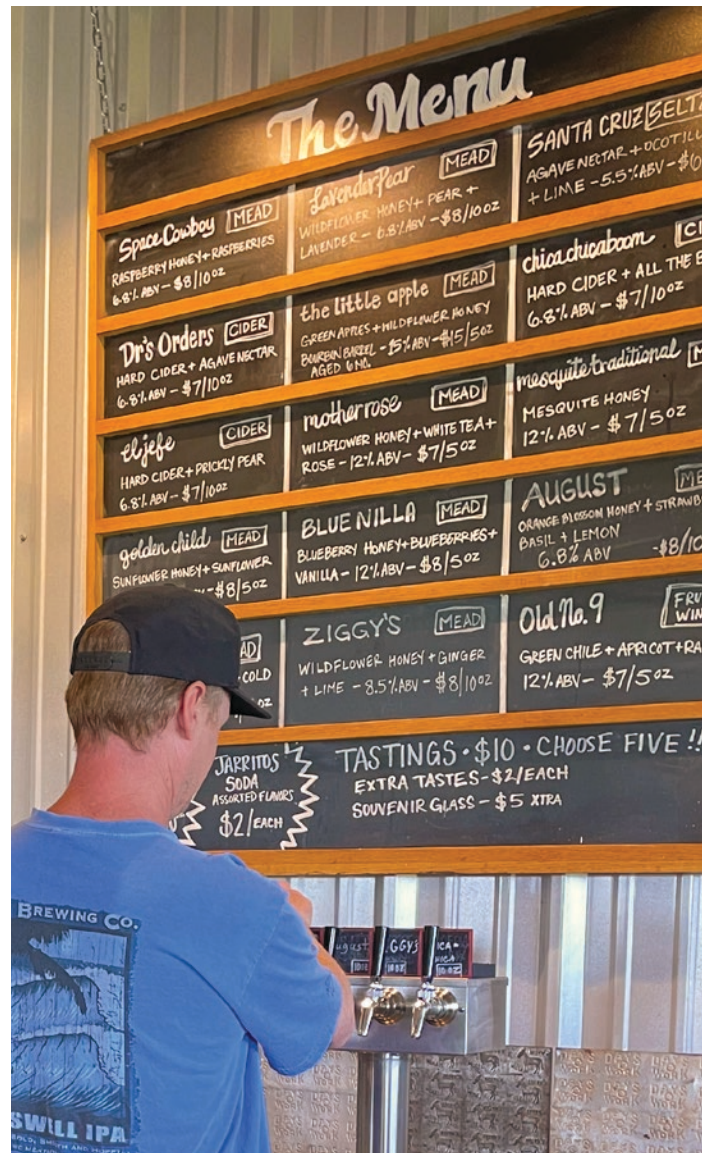 The Menu
Space Cowboy MEAD
RASPBERRY HONEY + RASPBERRIES
6.8% ABV - $8/10 OZ
Lavender Pear MEAD
WILDFLOWER HONEY + PEAR +
LAVENDER - 6.8% ABV - $8/10 OZ
SANTA CRUZ SELTZ
AGAVE NECTAR + OCOTILL
+ LIME - 5.5% ABV - $6
Dr's Orders CIDER
HARD CIDER + AGAVE NECTAR
6.8% ABV - $7/10 OZ
the little apple MEAD
GREEN APPLES + WILDFLOWER HONEY
BOURBON BARREL - 15% ABV - $15/5 OZ
AGED 6 MO.
chica chicaboom CI
HARD CIDER + ALL THE B
6.8% ABV - $7/10 OZ
el jefe CIDER
HARD CIDER + PRICKLY PEAR
6.8% ABV - $7/10 OZ
mother rose MEAD
WILDFLOWER HONEY + WHITE TEA +
ROSE - 12% ABV - $7/5 OZ
mesquite traditional M
MESQUITE HONEY
12% ABV - $7/5 OZ
golden child MEAD
SUNFLOWER HONEY + SUNFLOWER
$8/5 OZ
BLUE NILLA MEAD
BLUEBERRY HONEY + BLUEBERRIES +
VANILLA - 12% ABV - $8/5 OZ
AUGUST ME
ORANGE BLOSSOM HONEY + STRAWB
BASIL + LEMON
6.8% ABV - $8/10
AD
COLD
OZ
ZIGGY'S MEAD
WILDFLOWER HONEY + GINGER
+ LIME - 8.5% ABV - $8/10 OZ
Old No. 9 FRU
WIN
GREEN CHILE + APRICOT + RA
12% ABV - $7/5 OZ
JARRITOS
SODA
ASSORTED FLAVORS
$2/EACH
TASTINGS • $10 • CHOOSE FIVE!!
EXTRA TASTES - $2/EACH
SOUVENIR GLASS - $5 XTRA
BREWING CO.
SWELL IPA
August
10 OZ
IGGY'S
10 OZ
ICA
10 OZ